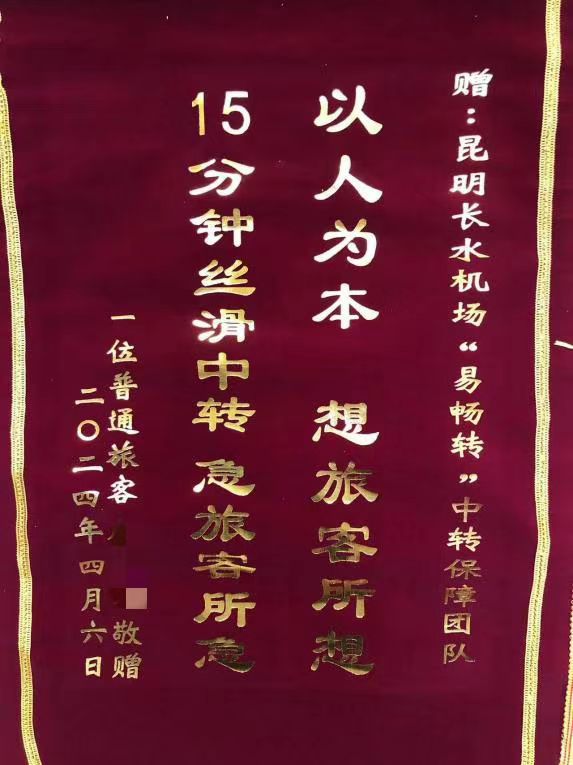 赠：昆明长水机场“易畅转”中转保障团队
以人为本 想旅客所想
15分钟丝滑中转 急旅客所急
一位普通旅客 敬赠
二〇二四年四月六日